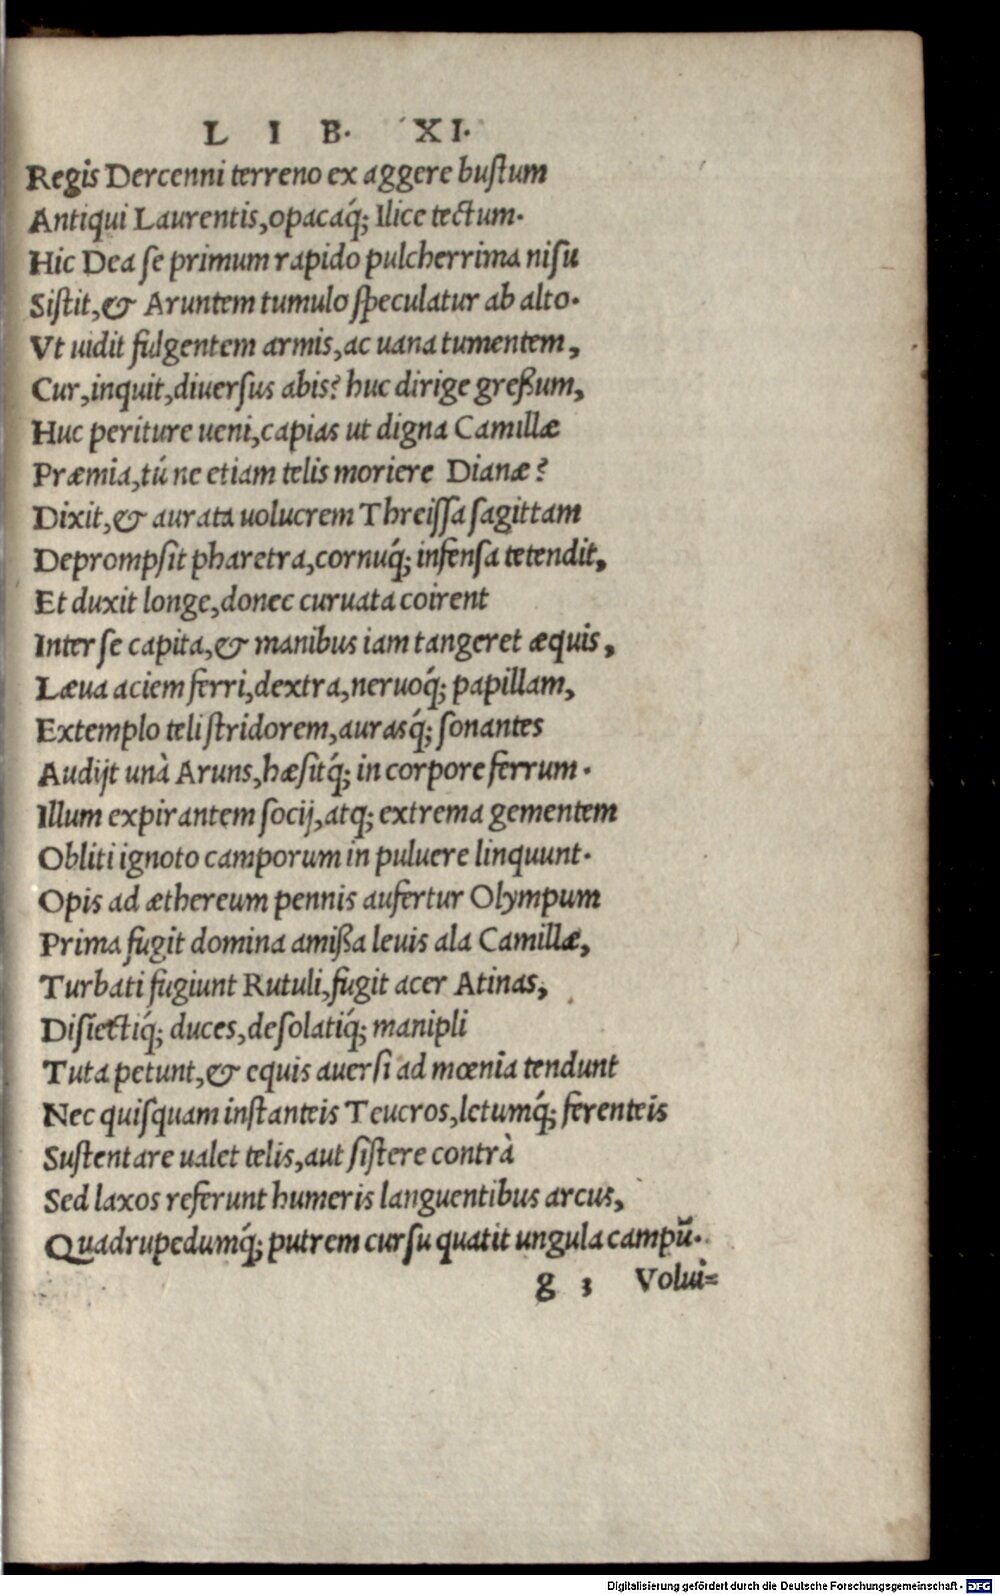 LIB. XI.
Regis Dercenni terreno ex aggere bustum
Antiqui Laurentis, opacaq́; Ilice tectum.
Hic Dea se primum rapido pulcherrima nisu
Sistit, & Aruntem tumulo speculatur ab alto.
Vt uidit fulgentem armis, ac uana tumentem,
Cur, inquit, diuersus abis? huc dirige greßum,
Huc periture ueni, capias ut digna Camillæ
Præmia, tú ne etiam telis moriere Dianæ?
Dixit, & aurata uolucrem Threissa sagittam
Deprompsit pharetra, cornuq́; infensa tetendit,
Et duxit longe, donec curuata coirent
Inter se capita, & manibus iam tangeret æquis,
Læua aciem ferri, dextra, neruoq́; papillam,
Extemplo teli stridorem, aurasq́; sonantes
Audijt unà Aruns, hæsitq́; in corpore ferrum.
Illum expirantem socij, atq; extrema gementem
Obliti ignoto camporum in puluere linquunt.
Opis ad æthereum pennis aufertur Olympum
Prima fugit domina amißa leuis ala Camillæ,
Turbati fugiunt Rutuli, fugit acer Atinas,
Disiectiq́; duces, desolatiq́; manipli
Tuta petunt, & equis auersi ad mœnia tendunt
Nec quisquam instanteis Teucros, letumq́; ferenteis
Sustentare ualet telis, aut sistere contrà
Sed laxos referunt humeris languentibus arcus,
Quadrupedumq́; putrem cursu quatit ungula campū.
g 3 Volui=
Digitalisierung gefördert durch die Deutsche Forschungsgemeinschaft - DFG